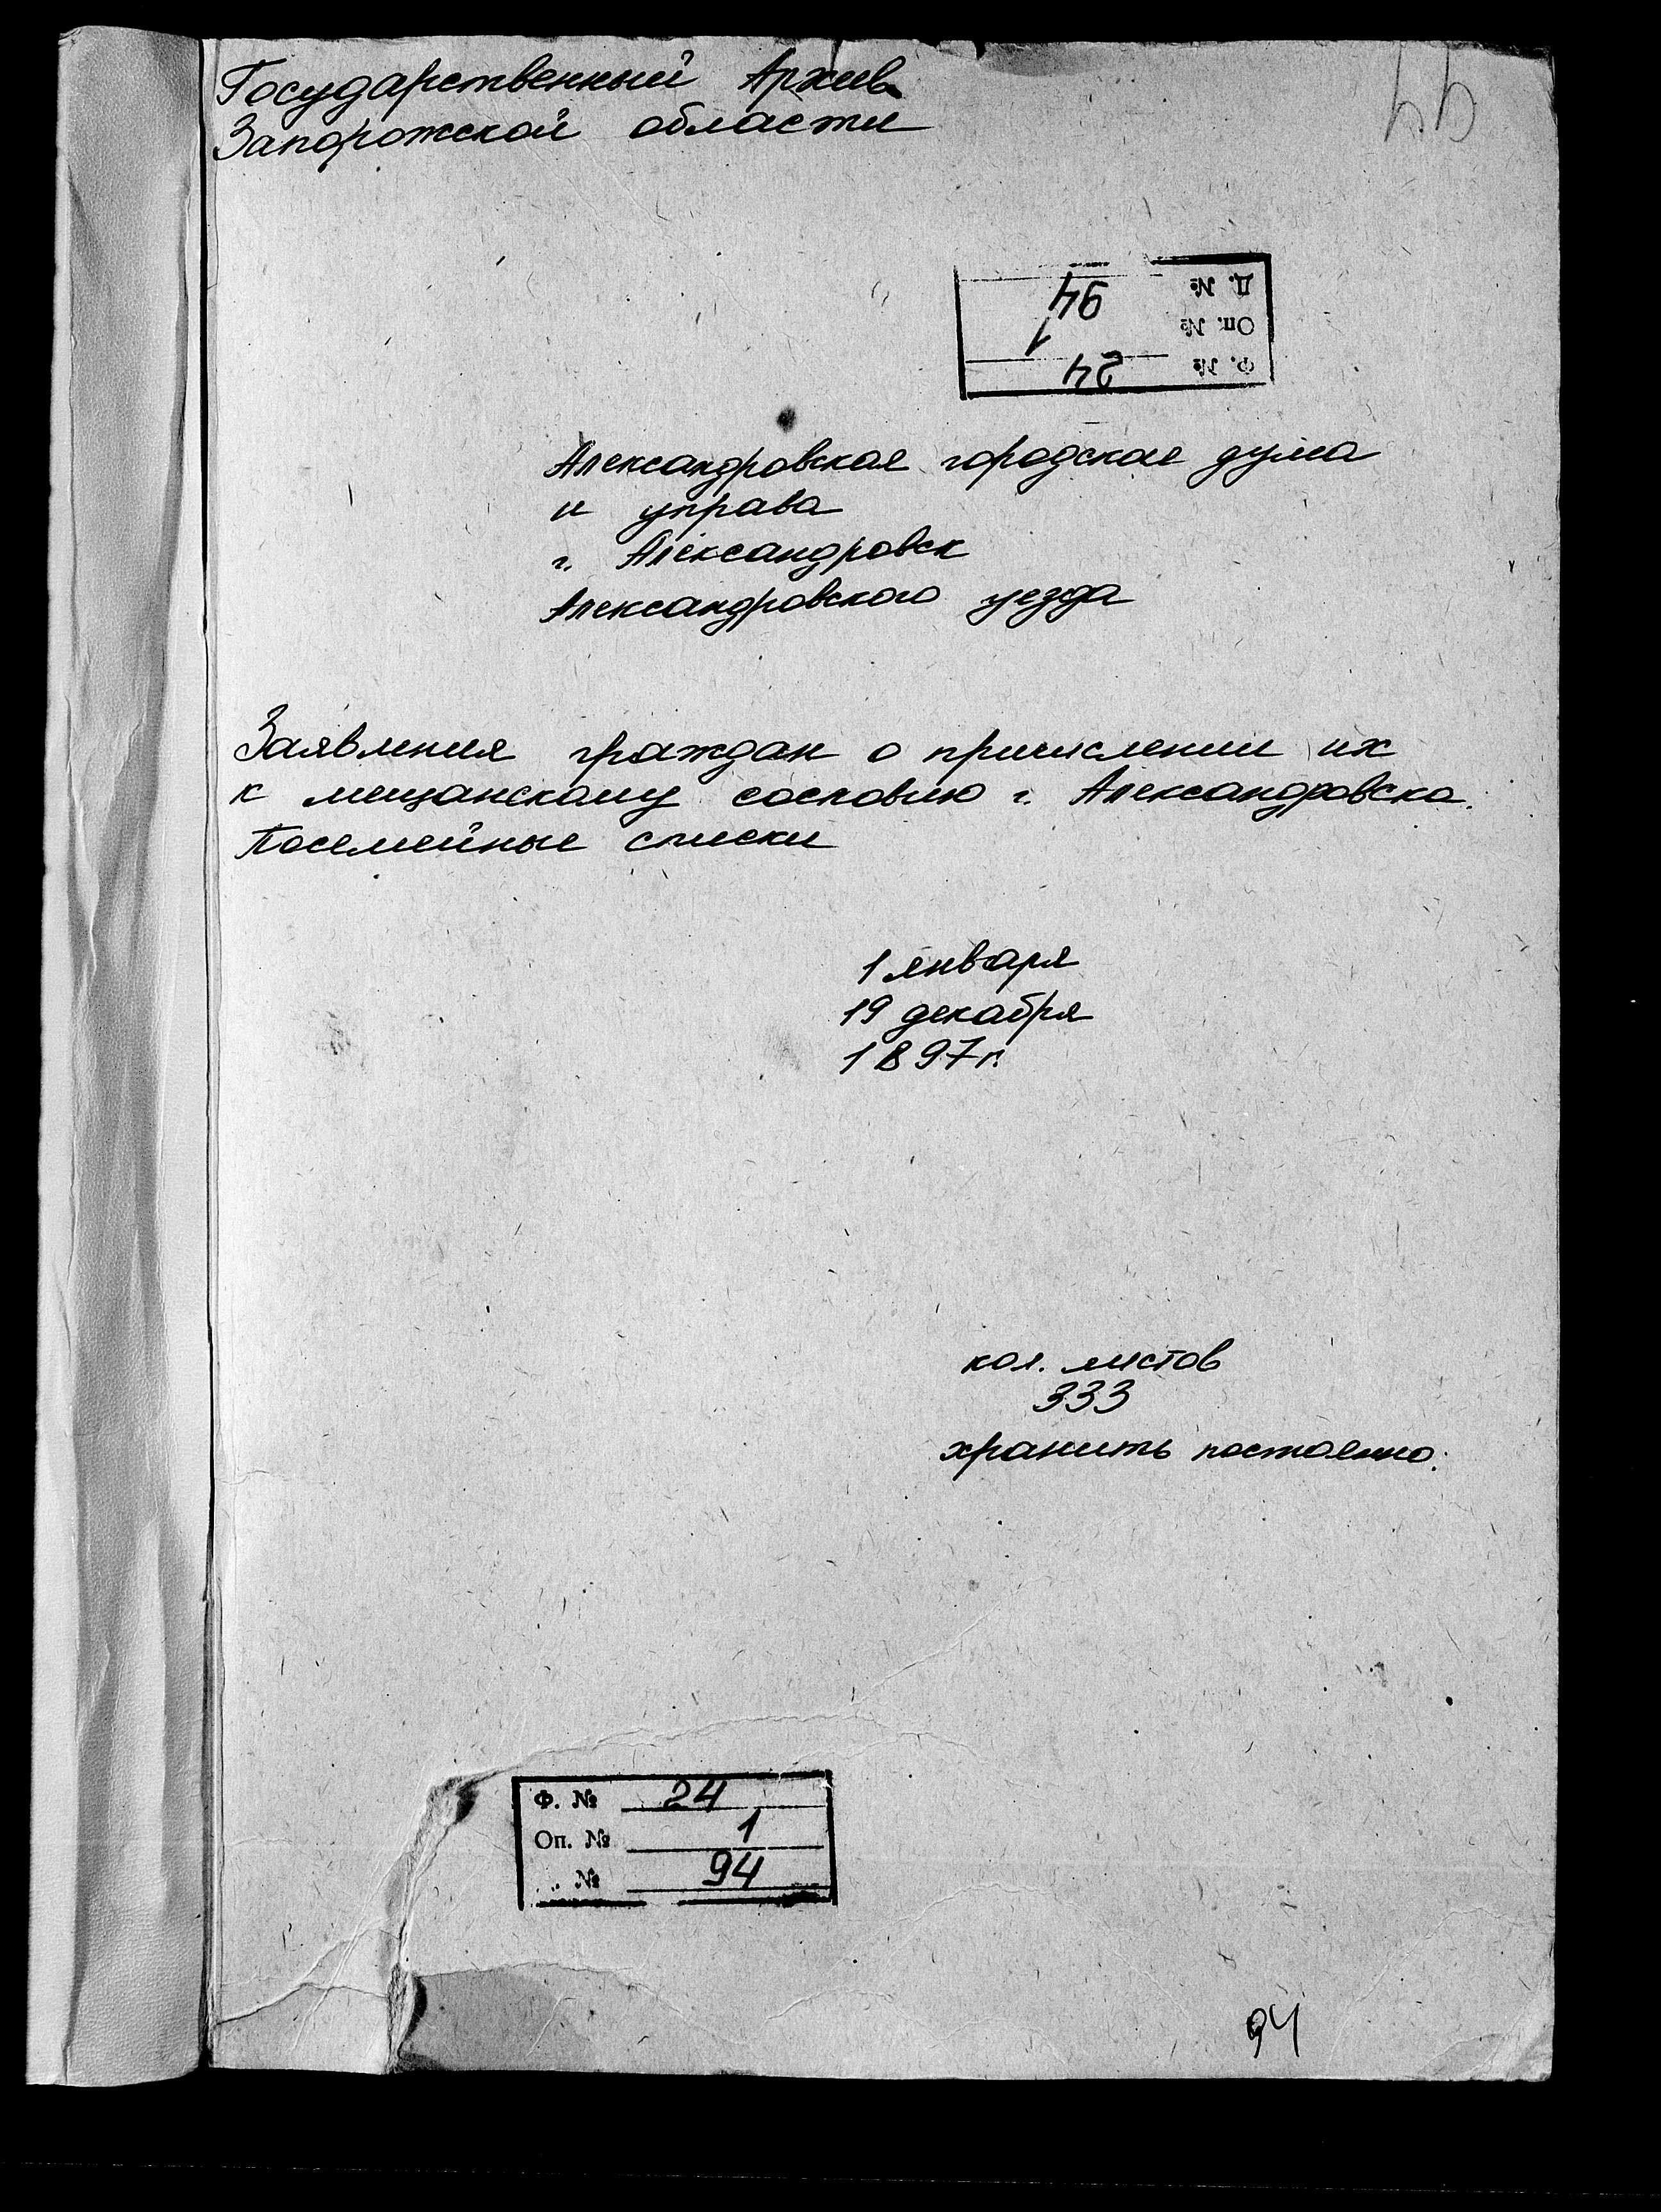 Государственный Архив
Запорожской области
44
Д. № 94
Оп. № 1
Ф. № 24
Александровская городская дума
и управа
г. Александровск
Александровского уезда
Заявления граждан о причислении их
к мещанскому сословию г. Александровска.
Посемейные списки
1 января
19 декабря
1897 г.
кол. листов
333
хранить постоянно.
Ф. № 24
Оп. № 1
№ 94
94